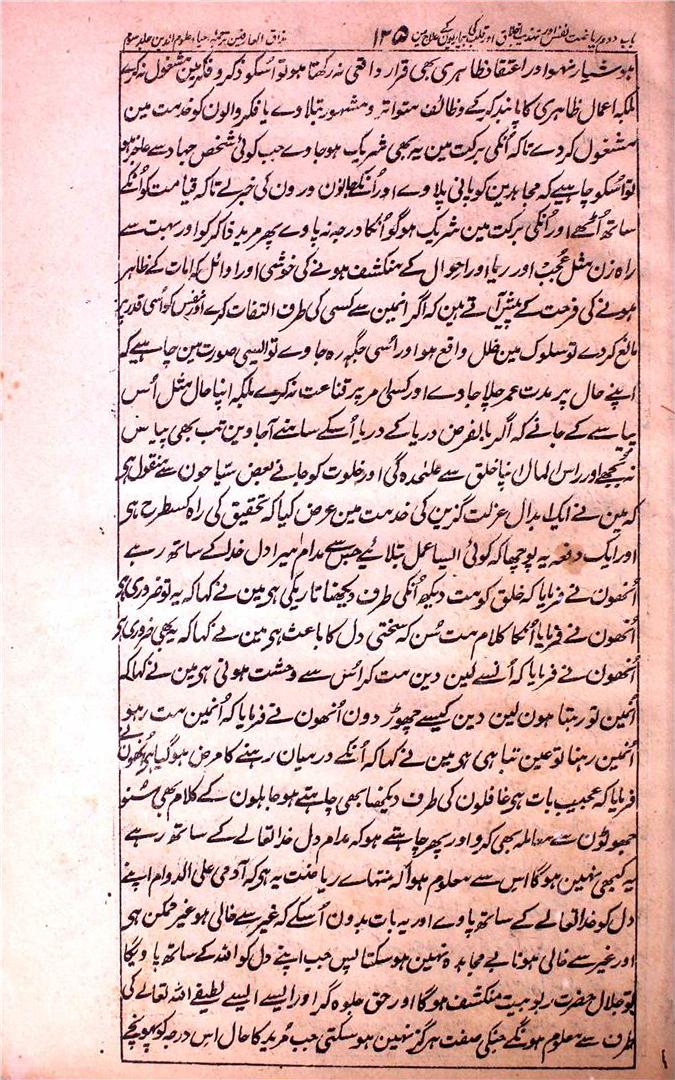 باب دوم ریاضت نفس اور تہذیب اخلاق اور قلب کی بیماریوں کے علاج مین ۱۳۵ مذاق العارفین ترجمہ احیاء علوم الدین جلد سوم
ہوشیار نہو اور اعتقاد ظاہری بھی قرار واقعی نہ رکھتا ہو تو اُسکو ذکر و فکر مین مشغول نہ کرے
بلکہ اعمال ظاہری کا پابند کرے کے وظائف متواتر و مشہور بتلادے یا فکر والون کو خدمت مین
مشغول کردے تاکہ اُنکی برکت مین یہ بھی شریک ہوجاوے جب کوئی شخص جہاد سے عاجز ہو
تو اُسکو چاہیے کہ مجاہدین کو پانی پلاوے اور اُنکے جانورون کی خبر لے تاکہ قیامت کو اُنکے
ساتھ اُٹھے اور اُنکی برکت مین شریک ہو گو اُنکا درجہ نہ پاوے پھر مرید ذاکر کو اور بہت سے
راہ زن مثل عُجب اور ریا اور احوال کے منکشف ہونے کی خوشی اور اوائل کرامات کے ظاہر
ہونے کی فرحت کے پیش آتے ہین کہ اگر انمین سے کسی کی طرف التفات کرے اور نفس کو اُسی قدر پر
مانع کردے تو سلوک مین خلل واقع ہو اور اُسی جگہ رہ جاوے تو ایسی صورت مین چاہیے کہ
اپنے حال پر مدت عمر چلا جاوے اور کسی امر پر قناعت نہ کرے بلکہ اپنا حال مثل اُس
پیاسے کے جانے کہ اگر بالفرض دریا کے دریا اُسکے سامنے آجاوین تب بھی پیاس
نہ بُجھے اور راس المال اپنا خلق سے علٰحدگی اور خلوت کو جانے بعض سیاحون سے منقول ہی
کہ مین نے ایک ابدال عزلت گزین کی خدمت مین عرض کیا کہ تحقیق کی راہ کسطرح ہی
اور ایک دفعہ یہ پوچھا کہ کوئی ایسا عمل بتلائیے جس سے مدام میرا دل خدا کے ساتھ رہے
اُنھون نے فرمایا کہ خلق کو مت دیکھ اُنکی طرف دیکھنا تاریکی ہی مین نے کہا کہ یہ تو ضروری ہی
اُنھون نے فرمایا اُنکا کلام مت سُن کہ سختی دل کا باعث ہی مین نے کہا کہ یہ بھی ضروری ہی
اُنھون نے فرمایا کہ اُنسے لین دین مت کر اُس سے وحشت ہوتی ہی مین نے کہا کہ
اُنمین تو رہتا ہون لین دین کیسے چھوڑ دون اُنھون نے فرمایا کہ اُنمین مت رہو
اُنمین رہنا تو عین تباہی ہی مین نے کہا کہ اُنکے درمیان رہنے کا مرض ہوگیا ہی اُنھون نے
فرمایا کہ عجیب بات ہی غافلون کی طرف دیکھنا بھی چاہتے ہو جاہلون کے کلام بھی سُنو
جھوٹون سے معاملہ بھی کرو اور پھر چاہتے ہو کہ مدام دل خدا تعالے کے ساتھ رہے
یہ کبھی نہین ہوگا اس سے معلوم ہوا کہ منتہاے ریاضت یہ ہی کہ آدمی علی الدوام اپنے
دل کو خدا تعالے کے ساتھ پاوے اور یہ بات بدون اُسکے کہ غیر سے خالی ہو غیر ممکن ہی
اور غیر سے خالی ہونا بے مجاہدہ نہین ہوسکتا پس جب اپنے دل کو اللہ کے ساتھ پاویگا
تو جلال حضرت ربوبیت منکشف ہوگا اور حق جلوہ گر اور ایسے ایسے لطیفے اللہ تعالے کی
طرف سے معلوم ہونگے جنکی صفت ہرگز نہین ہوسکتی جب مُرید کا حال اس درجہ کو پہونچے